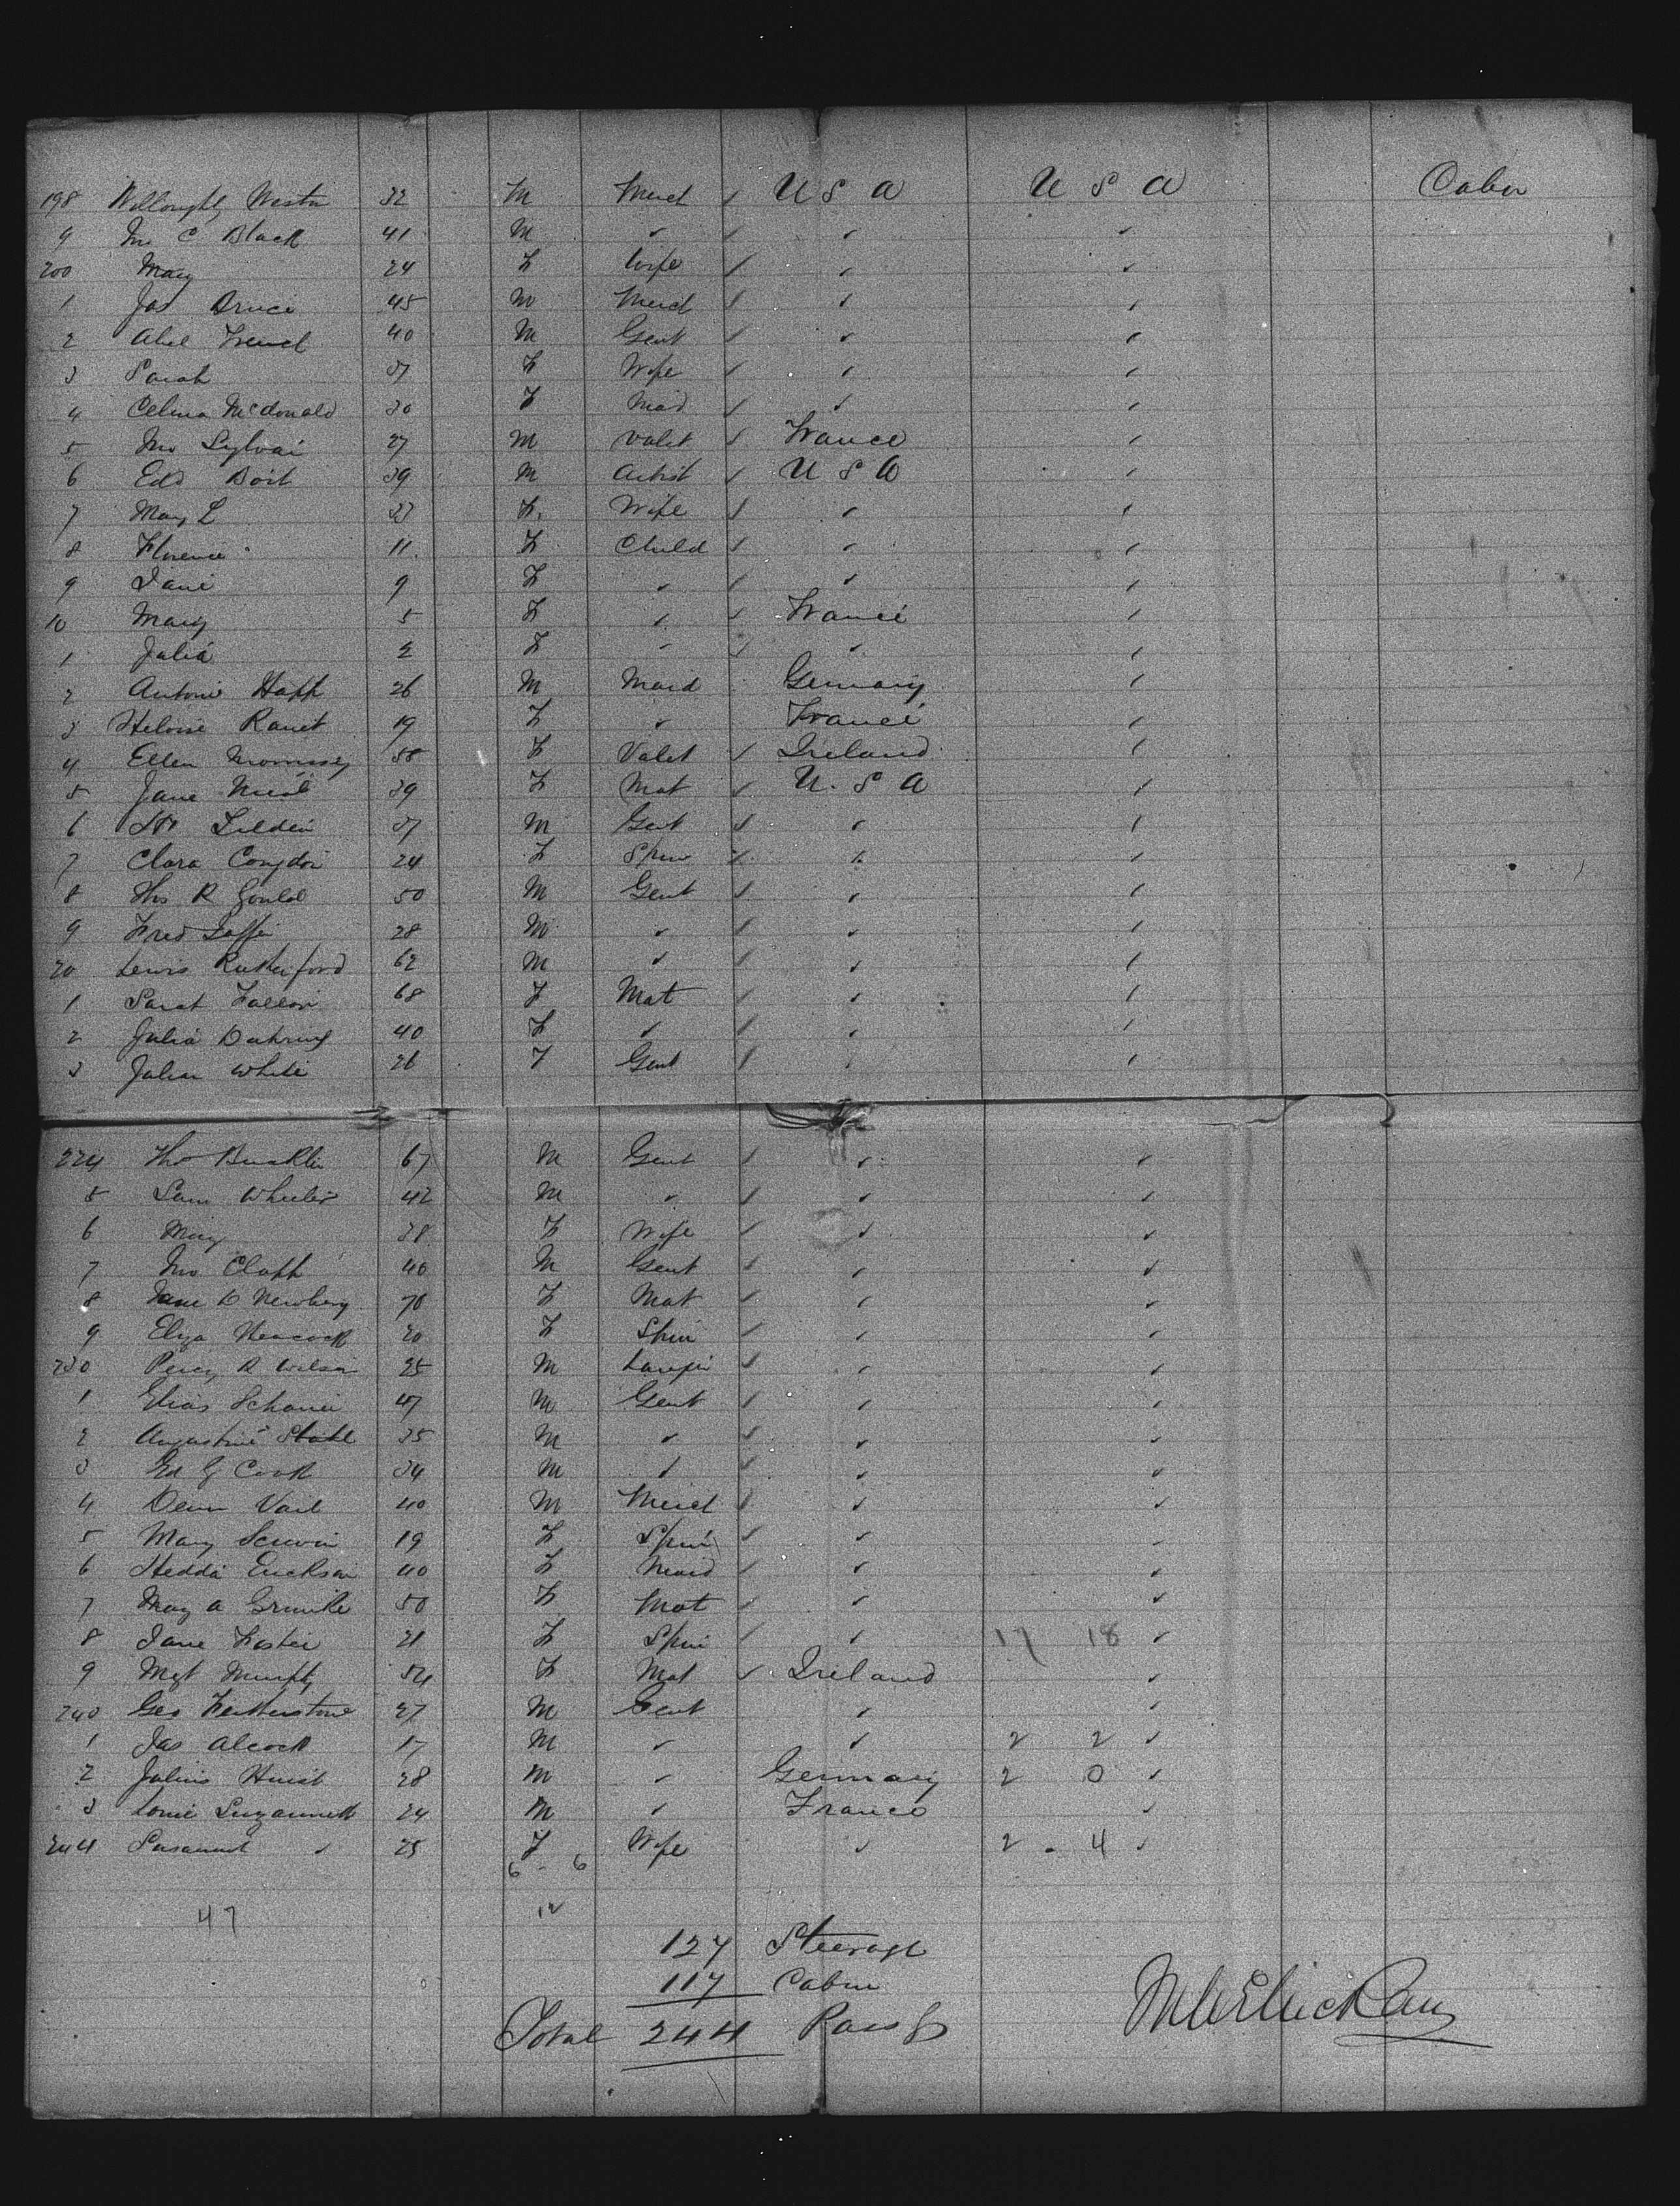 198 Willoughby Weston 32 M Merch ✓ U S A U S A Cabin
9 Jno C Black 41 M ✓ ✓ ✓ ✓
200 Mary 24 F Wife ✓ ✓ ✓
1 Jas Bruce 45 M Merch ✓ ✓ ✓
2 Abel French 40 M Gent ✓ ✓ ✓
3 Sarah 37 F Wife ✓ ✓ ✓
4 Celina McDonald 30 F Maid ✓ ✓ ✓
5 Jno Sylvai 27 M Valet ✓ France ✓
6 Edd Boit 39 M Artist ✓ U S A ✓
7 Mary L 33 F Wife ✓ ✓ ✓
8 Florence 11 F Child ✓ ✓ ✓
9 Jane 9 F ✓ ✓ ✓ ✓
10 Mary 5 F ✓ ✓ France ✓
1 Julia 2 F ✓ ✓ ✓ ✓
2 Antonie Happ 26 M Maid Germany ✓
3 Heloise Ranet 19 F ✓ France ✓
4 Ellen Morrissey 58 F Valet ✓ Ireland ✓
5 Jane 39 F Mat ✓ U. S A ✓
6 Wm 37 M Gent ✓ ✓ ✓
7 Clara Congdon 24 F Spin ✓ ✓ ✓
8 Ths R Gould 50 M Gent ✓ ✓ ✓
9 Fred 28 M ✓ ✓ ✓ ✓
20 Lewis Rutherford 62 M ✓ ✓ ✓ ✓
1 Sarah Fallon 68 F Mat ✓ ✓ ✓
2 Julia 40 F ✓ ✓ ✓ ✓
3 Julian White 26 F Gent ✓ ✓ ✓
224 Tho Bucklin 67 M Gent ✓ ✓ ✓
5 Sam Wheeler 42 M ✓ ✓ ✓ ✓
6 Mary 38 F Wife ✓ ✓ ✓
7 Jno Clapp 40 M Gent ✓ ✓ ✓
8 Jane D Newberry 70 F Mat ✓ ✓ ✓
9 Eliza Heacock 20 F Spin ✓ ✓ ✓
230 Percy R Wilson 25 M Lawyer ✓ ✓ ✓
1 Elias 47 M Gent ✓ ✓ ✓
2 Augustine Stahl 35 M ✓ ✓ ✓ ✓
3 Ed G Cook 34 M ✓ ✓ ✓ ✓
4 Vail 40 M Merch ✓ ✓ ✓
5 Mary 19 F Spin ✓ ✓ ✓
6 Hedda Erickson 40 F Maid ✓ ✓ ✓
7 Mary A 50 F Mat ✓ ✓ ✓
8 Jane Foster 21 F Spin ✓ ✓ 17 18 ✓
9 Mgt Murphy 54 F Mat ✓ Ireland ✓
240 Geo Featherstone 27 M Gent ✓ ✓
1 Jas Alcock 17 M ✓ ✓ 2 2 ✓
2 Julius Hurst 28 M ✓ Germany 2 0 ✓
3 Louie 24 M ✓ France ✓
244 ✓ 25 F Wife ✓ 2 - 4 ✓
6 - 6
47 12
127 Steerage
117 Cabin
Total 244 Passgs